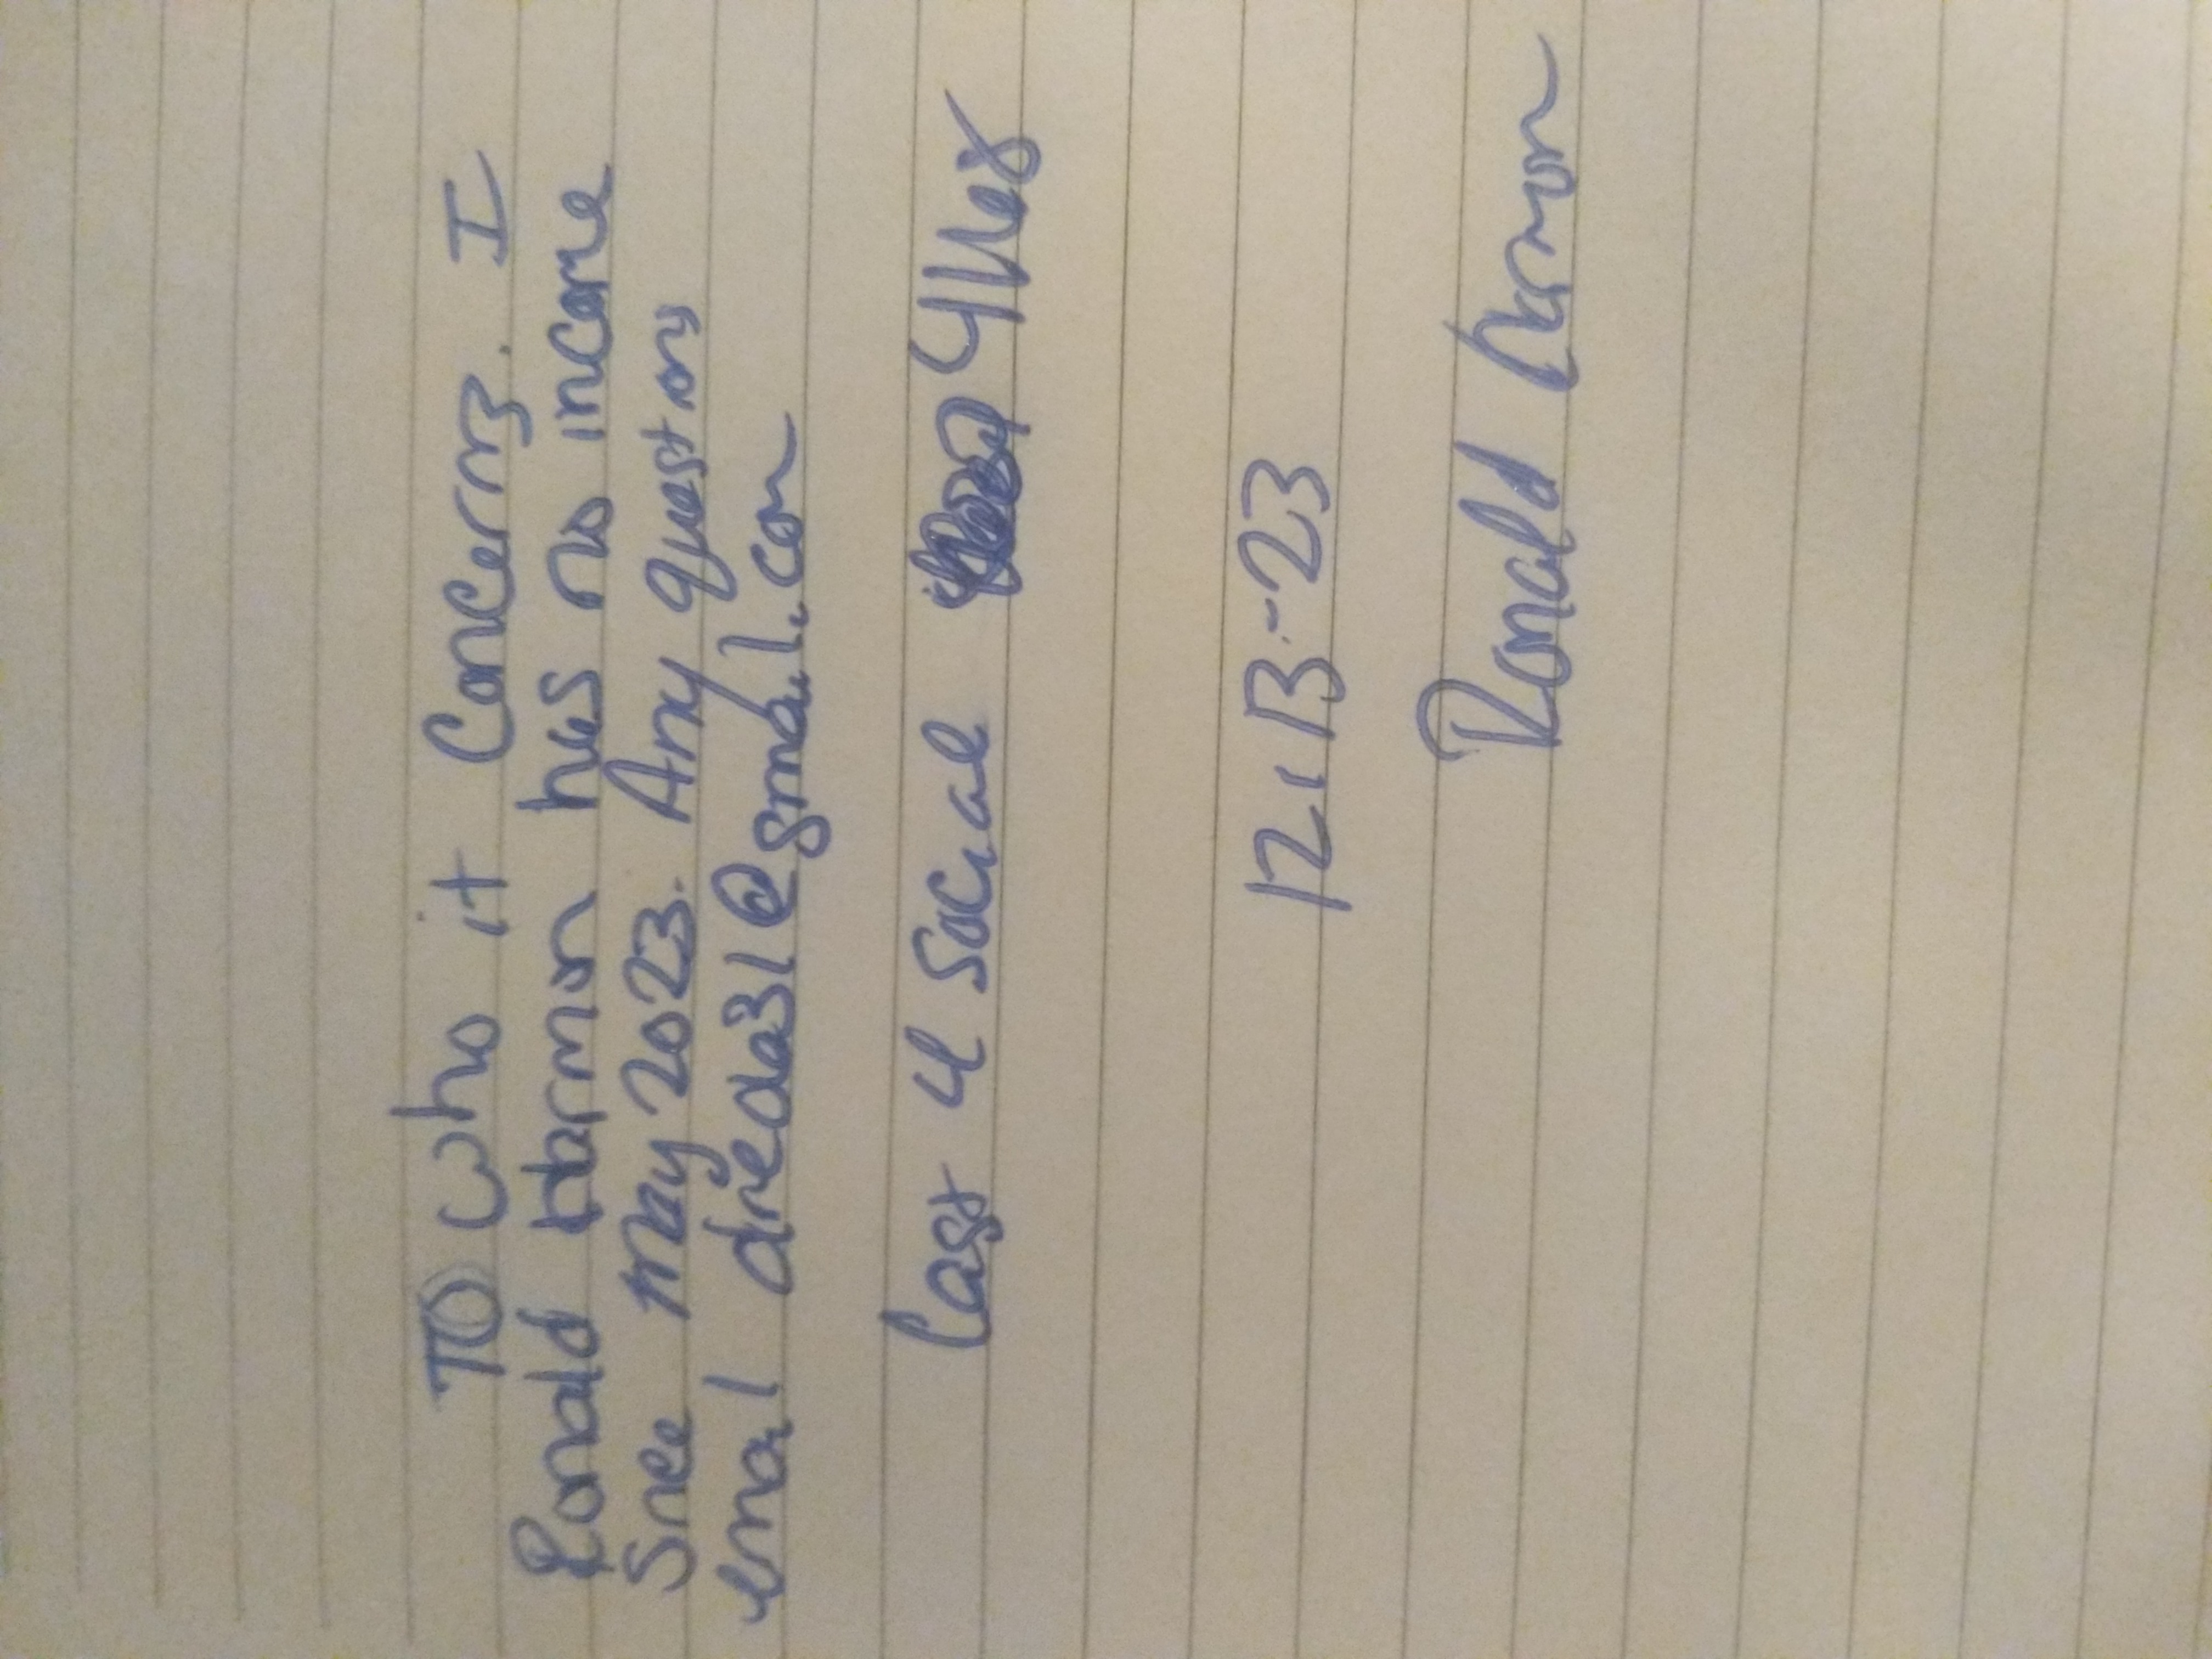 TO who it Concerns. I
Ronald Harmon has no income
Since may 2023. Any questions
email dreda31@gmail.com
Last 4 Social
12-13-23
Ronald Harmon